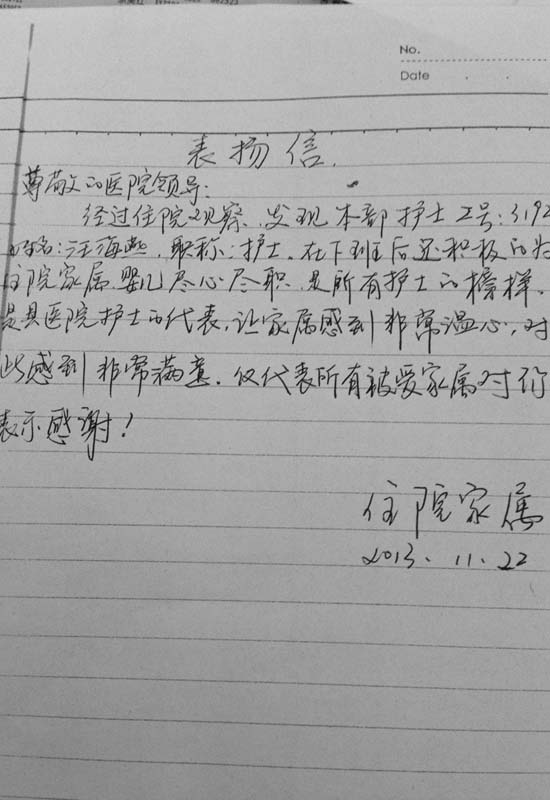 No.
Date
表扬信.
尊敬的医院领导:
经过住院观察,发现本部护士工号:3192
姓名:汪海燕,职称:护士.在下班后还积极的为
住院家属婴儿尽心尽职,是所有护士的榜样.
是其医院护士的代表,让家属感到非常温心,对
此感到非常满意.仅代表所有被爱家属对你
表示感谢!
住院家属
2013.11.22